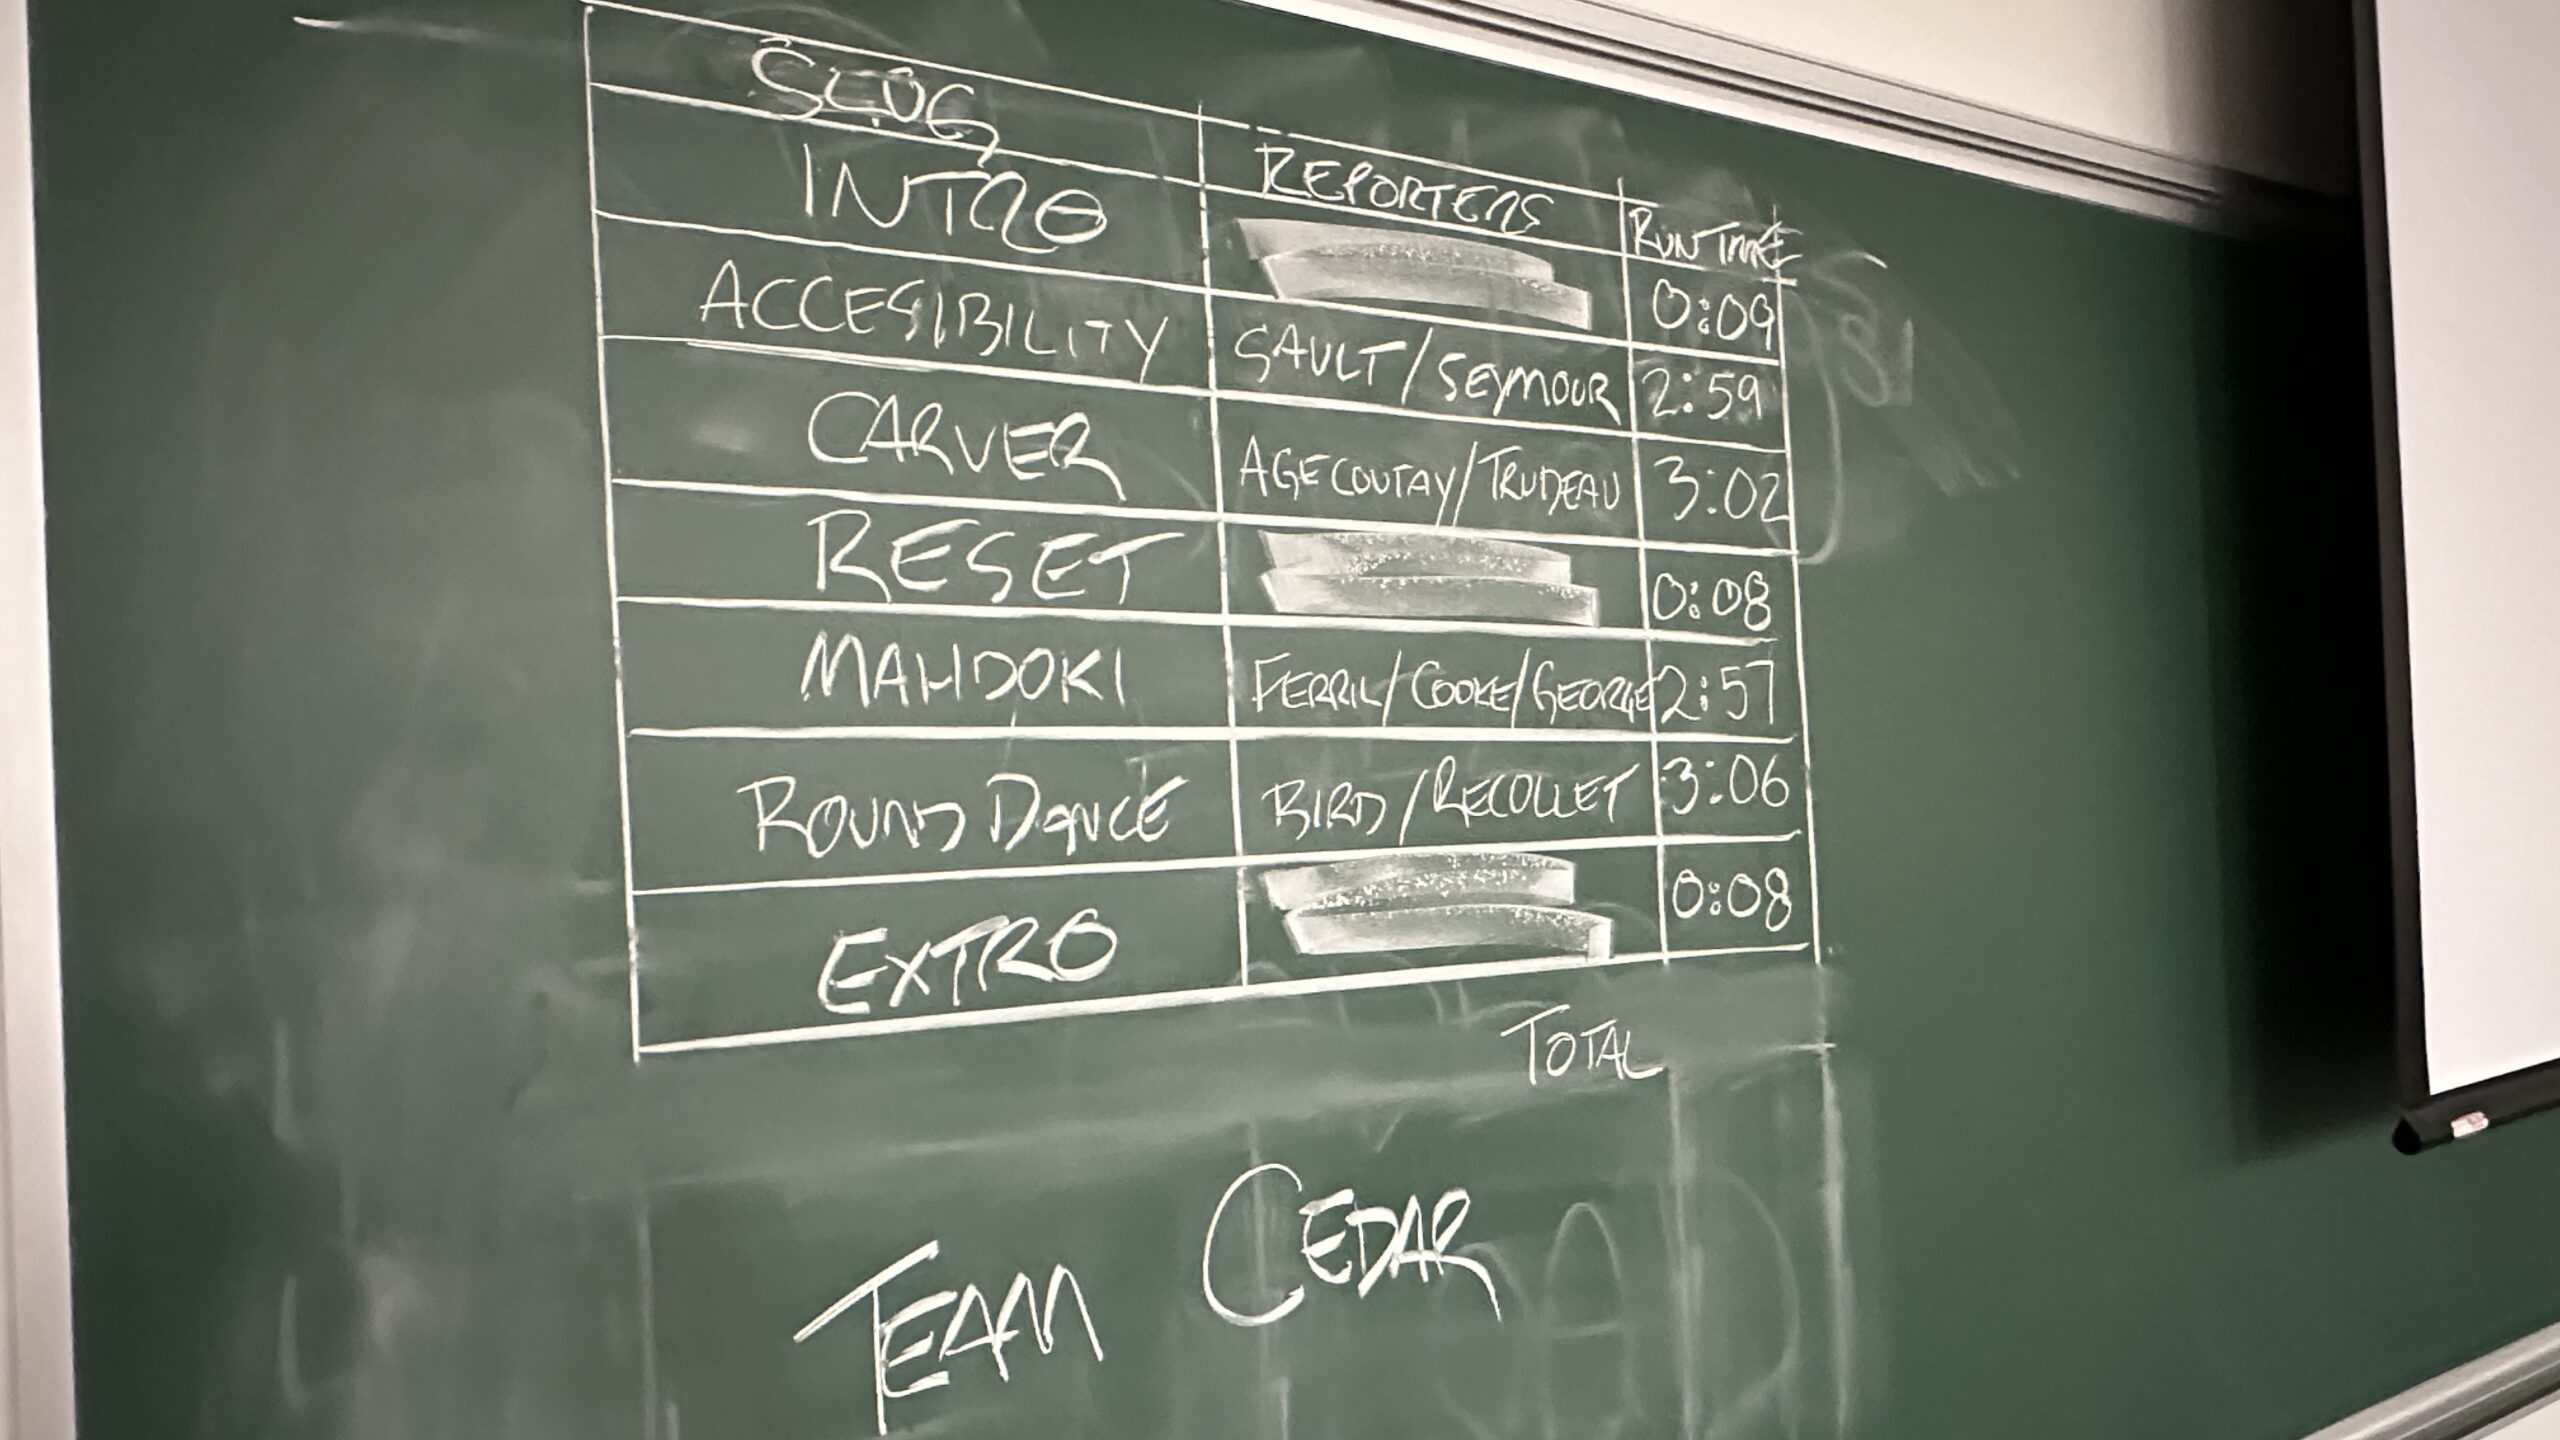 SLUG REPORTERS RUN TIME
INTRO 0:09
ACCESIBILITY SAULT/SEYMOUR 2:59
CARVER AGECOUTAY/TRUDEAU 3:02
RESET 0:08
MAHDOKI FERRIL/COOKE/GEORGE 2:57
ROUND DANCE BIRD/RECOLLET 3:06
EXTRO 0:08
TOTAL
TEAM CEDAR